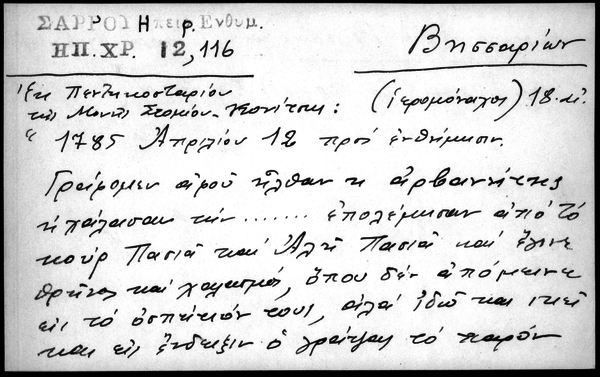 ΣΑΡΡΟΥ Ηπειρ. Ενθυμ.
ΗΠ. ΧΡ. 12, 116
Βησσαρίων
Ἐκ Πεντηκοσταρίου
τῆς Μονῆς Στομίου - Κονίτσης :
(ἱερομόναχος) 18. αἰ.
« 1785 Ἀπριλίου 12 πρός ἐνθήμησιν.
Γράφομεν ἀφοῦ ἦλθαν η ἀρβαννίτης
η χάλασαν την ....... ἐπολέμησαν ἀπό τό
κούρ Πασιᾶ καί Ἀλῆ Πασιᾶ καί ἔγινε
θρῆνος καί χαλασμός, ὅπου δέν ἀπόμεινε
εἰς τό ὀσπήτιόν τους, ἀλλά ἐδῶ και εκεῖ
και εἰς ἔνδειξιν ὁ γράψας τό παρόν